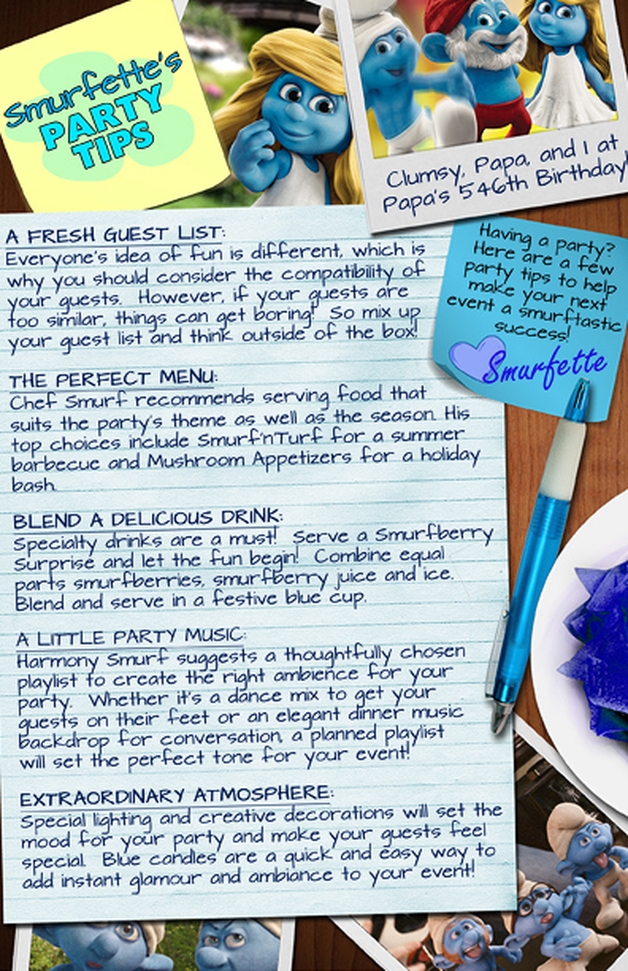 Smurfette's
PARTY
TIPS
Clumsy, Papa, and I at
Papa's 546th Birthday!
Having a party?
Here are a few
party tips to help
make your next
event a smurftastic
success!
Smurfette
A FRESH GUEST LIST:
Everyone's idea of fun is different, which is
why you should consider the compatibility of
your guests. However, if your guests are
too similar, things can get boring! So mix up
your guest list and think outside of the box!
THE PERFECT MENU:
Chef Smurf recommends serving food that
suits the party's theme as well as the season. His
top choices include Smurf'n'Turf for a summer
barbecue and Mushroom Appetizers for a holiday
bash.
BLEND A DELICIOUS DRINK:
Specialty drinks are a must! Serve a Smurfberry
Surprise and let the fun begin! Combine equal
parts smurfberries, smurfberry juice and ice.
Blend and serve in a festive blue cup.
A LITTLE PARTY MUSIC:
Harmony Smurf suggests a thoughtfully chosen
playlist to create the right ambience for your
party. Whether it's a dance mix to get your
guests on their feet or an elegant dinner music
backdrop for conversation, a planned playlist
will set the perfect tone for your event!
EXTRAORDINARY ATMOSPHERE:
Special lighting and creative decorations will set the
mood for your party and make your guests feel
special. Blue candles are a quick and easy way to
add instant glamour and ambiance to your event!